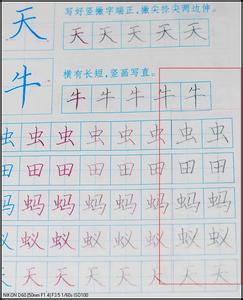 天
写好竖撇字端正,撇尖捺尖两边伸。
天天天天天
牛
横有长短,竖画写直。
牛牛牛牛牛
虫虫虫虫虫虫
田田田田田田
蚂蚂蚂蚂蚂蚂
蚁蚁蚁蚁蚁蚁
天天天天天天
NIKON D60 [50mm F1.4] F3.5 1/60s ISO100